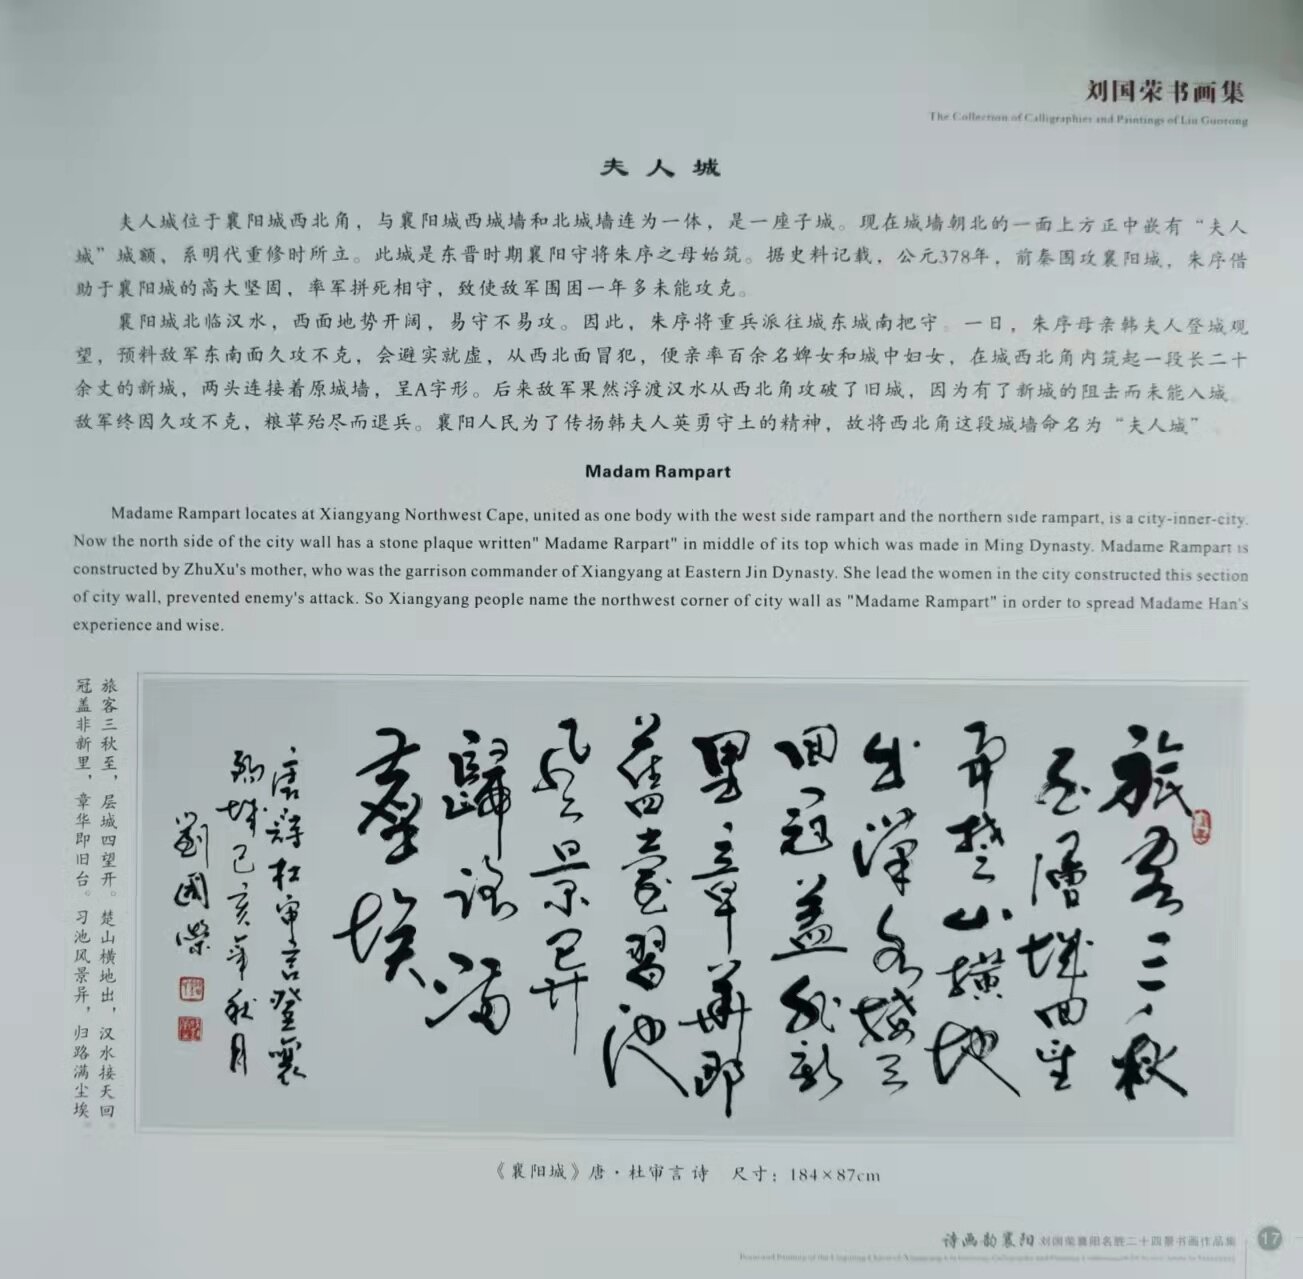 刘国荣书画集
The Collection of Calligraphies and Paintings of Liu Guorong
夫人城
夫人城位于襄阳城西北角，与襄阳城西城墙和北城墙连为一体，是一座子城。现在城墙朝北的一面上方正中嵌有“夫人
城”城额，系明代重修时所立。此城是东晋时期襄阳守将朱序之母始筑。据史料记载，公元378年，前秦围攻襄阳城，朱序借
助于襄阳城的高大坚固，率军拼死相守，致使敌军围困一年多未能攻克。
襄阳城北临汉水，西面地势开阔，易守不易攻。因此，朱序将重兵派往城东城南把守。一日，朱序母亲韩夫人登城观
望，预料敌军东南面久攻不克，会避实就虚，从西北面冒犯，便亲率百余名婢女和城中妇女，在城西北角内筑起一段长二十
余丈的新城，两头连接着原城墙，呈A字形。后来敌军果然浮渡汉水从西北角攻破了旧城，因为有了新城的阻击而未能入城。
敌军终因久攻不克，粮草殆尽而退兵。襄阳人民为了传扬韩夫人英勇守土的精神，故将西北角这段城墙命名为“夫人城”
Madam Rampart
Madame Rampart locates at Xiangyang Northwest Cape, united as one body with the west side rampart and the northern side rampart, is a city-inner-city.
Now the north side of the city wall has a stone plaque written" Madame Rarpart" in middle of its top which was made in Ming Dynasty. Madame Rampart is
constructed by ZhuXu's mother, who was the garrison commander of Xiangyang at Eastern Jin Dynasty. She lead the women in the city constructed this section
of city wall, prevented enemy's attack. So Xiangyang people name the northwest corner of city wall as "Madame Rampart" in order to spread Madame Han's
experience and wise.
旅客三秋至，层城四望开。楚山横地出，汉水接天回。
冠盖非新里，章华即旧台。习池风景异，归路满尘埃。
旅客三秋
至層城四望
開楚山横地
出漢水接天
回冠蓋非新
里章華即
舊臺習池
風景異
歸路滿
塵埃
唐詩杜审言登襄
陽城己亥年秋月
劉國榮
《襄阳城》唐·杜审言诗 尺寸：184×87cm
诗画韵襄阳 刘国荣襄阳名胜二十四景书画作品集
17